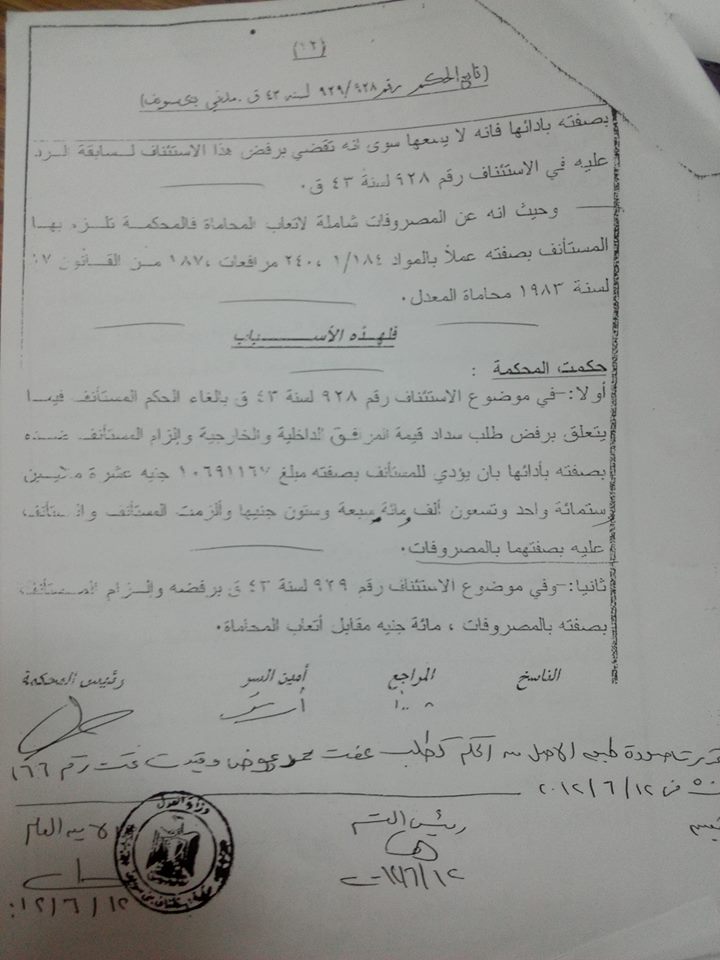 (١٢)
(تابع الحكم رقم ٩٢٩/٩٢٨ لسنة ٤٣ ق. مدني بني سويف)
بصفته بادائها فانه لا يسعها سوى انه تقضي برفض هذا الاستئناف لسابقة الرد
عليه في الاستئناف رقم ٩٢٨ لسنة ٤٣ ق.
وحيث انه عن المصروفات شاملة لاتعاب المحاماة فالمحكمة تلزم بها
المستأنف بصفته عملاً بالمواد ١/١٨٤ ، ٢٤٠ مرافعات ، ١٨٧ من القانون ١٧
لسنة ١٩٨٣ محاماة المعدل.
فلهذه الأســـباب
حكمت المحكمة :
أولا:-في موضوع الاستئناف رقم ٩٢٨ لسنة ٤٣ ق بالغاء الحكم المستأنف فيما
يتعلق برفض طلب سداد قيمة المرافق الداخلية والخارجية وإلزام المستأنف ضده
بصفته بأدائها بان يؤدي للمستأنف بصفته مبلغ ١٠٦٩١١٦٧ جنيه عشرة ملايين
وستمائة واحد وتسعون ألف ومائة سبعة وستون جنيها وألزمت المستأنف والمستأنف
عليه بصفتهما بالمصروفات.
ثانيا:-وفي موضوع الاستئناف رقم ٩٢٩ لسنة ٤٣ ق برفضه وإلزام المستأنف
بصفته بالمصروفات ، مائة جنيه مقابل أتعاب المحاماة.
الناسخ المراجع أمين السر رئيس المحكمة
صورة طبق الاصل من الحكم كطلب عفت محمد عوض وقيدت تحت رقم ١٦٦
في ٢٠١٢/٦/١٢
رئيس القسم
الامين العام
وزارة العدل
٦/١٢
٢٠١٢/٦/١٢